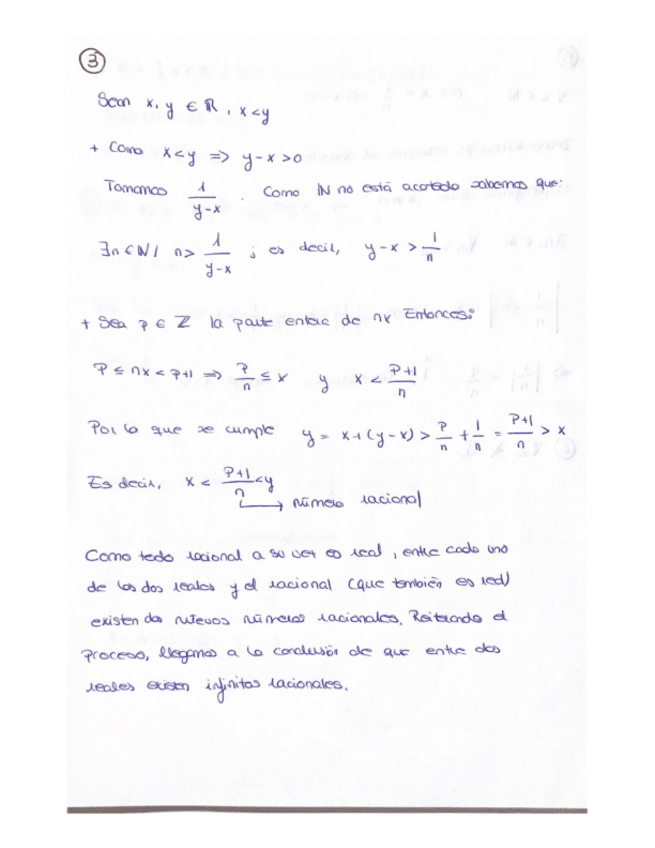 3
Sean x, y ∈ ℝ, x < y
+ Como x < y ⇒ y - x > 0
Tomamos 1/(y-x). Como ℕ no está acotado sabemos que:
∃n ∈ ℕ / n > 1/(y-x) ; es decir, y - x > 1/n
+ Sea p ∈ ℤ la parte entera de nx Entonces:
P ≤ nx < p+1 ⇒ P/n ≤ x y x < (P+1)/n
Por lo que se cumple y = x + (y - x) > P/n + 1/n = (P+1)/n > x
Es decir, x < (P+1)/n < y
→ número racional
Como todo racional a su vez es real, entre cada uno
de los dos reales y el racional (que también es real)
existen dos nuevos números racionales. Reiterando el
proceso, llegamos a la conclusión de que entre dos
reales existen infinitos racionales.